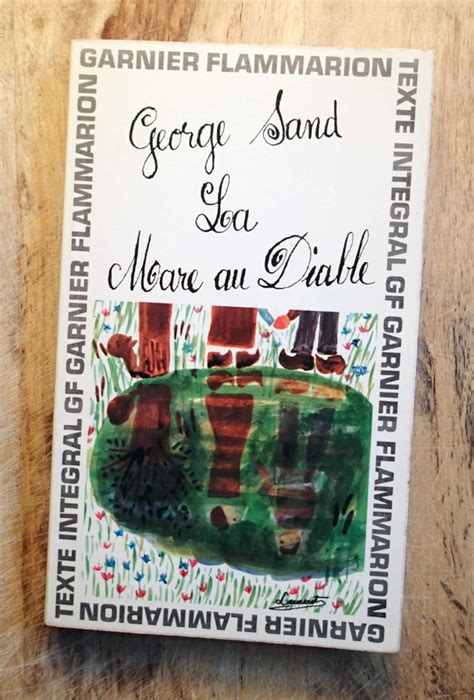 GARNIER FLAMMARION
George Sand
La
Mare au Diable
TEXTE INTEGRAL GF GARNIER FLAMMARION
TEXTE INTEGRAL GF GARNIER FLAMMARION
GARNIER FLAMMARION